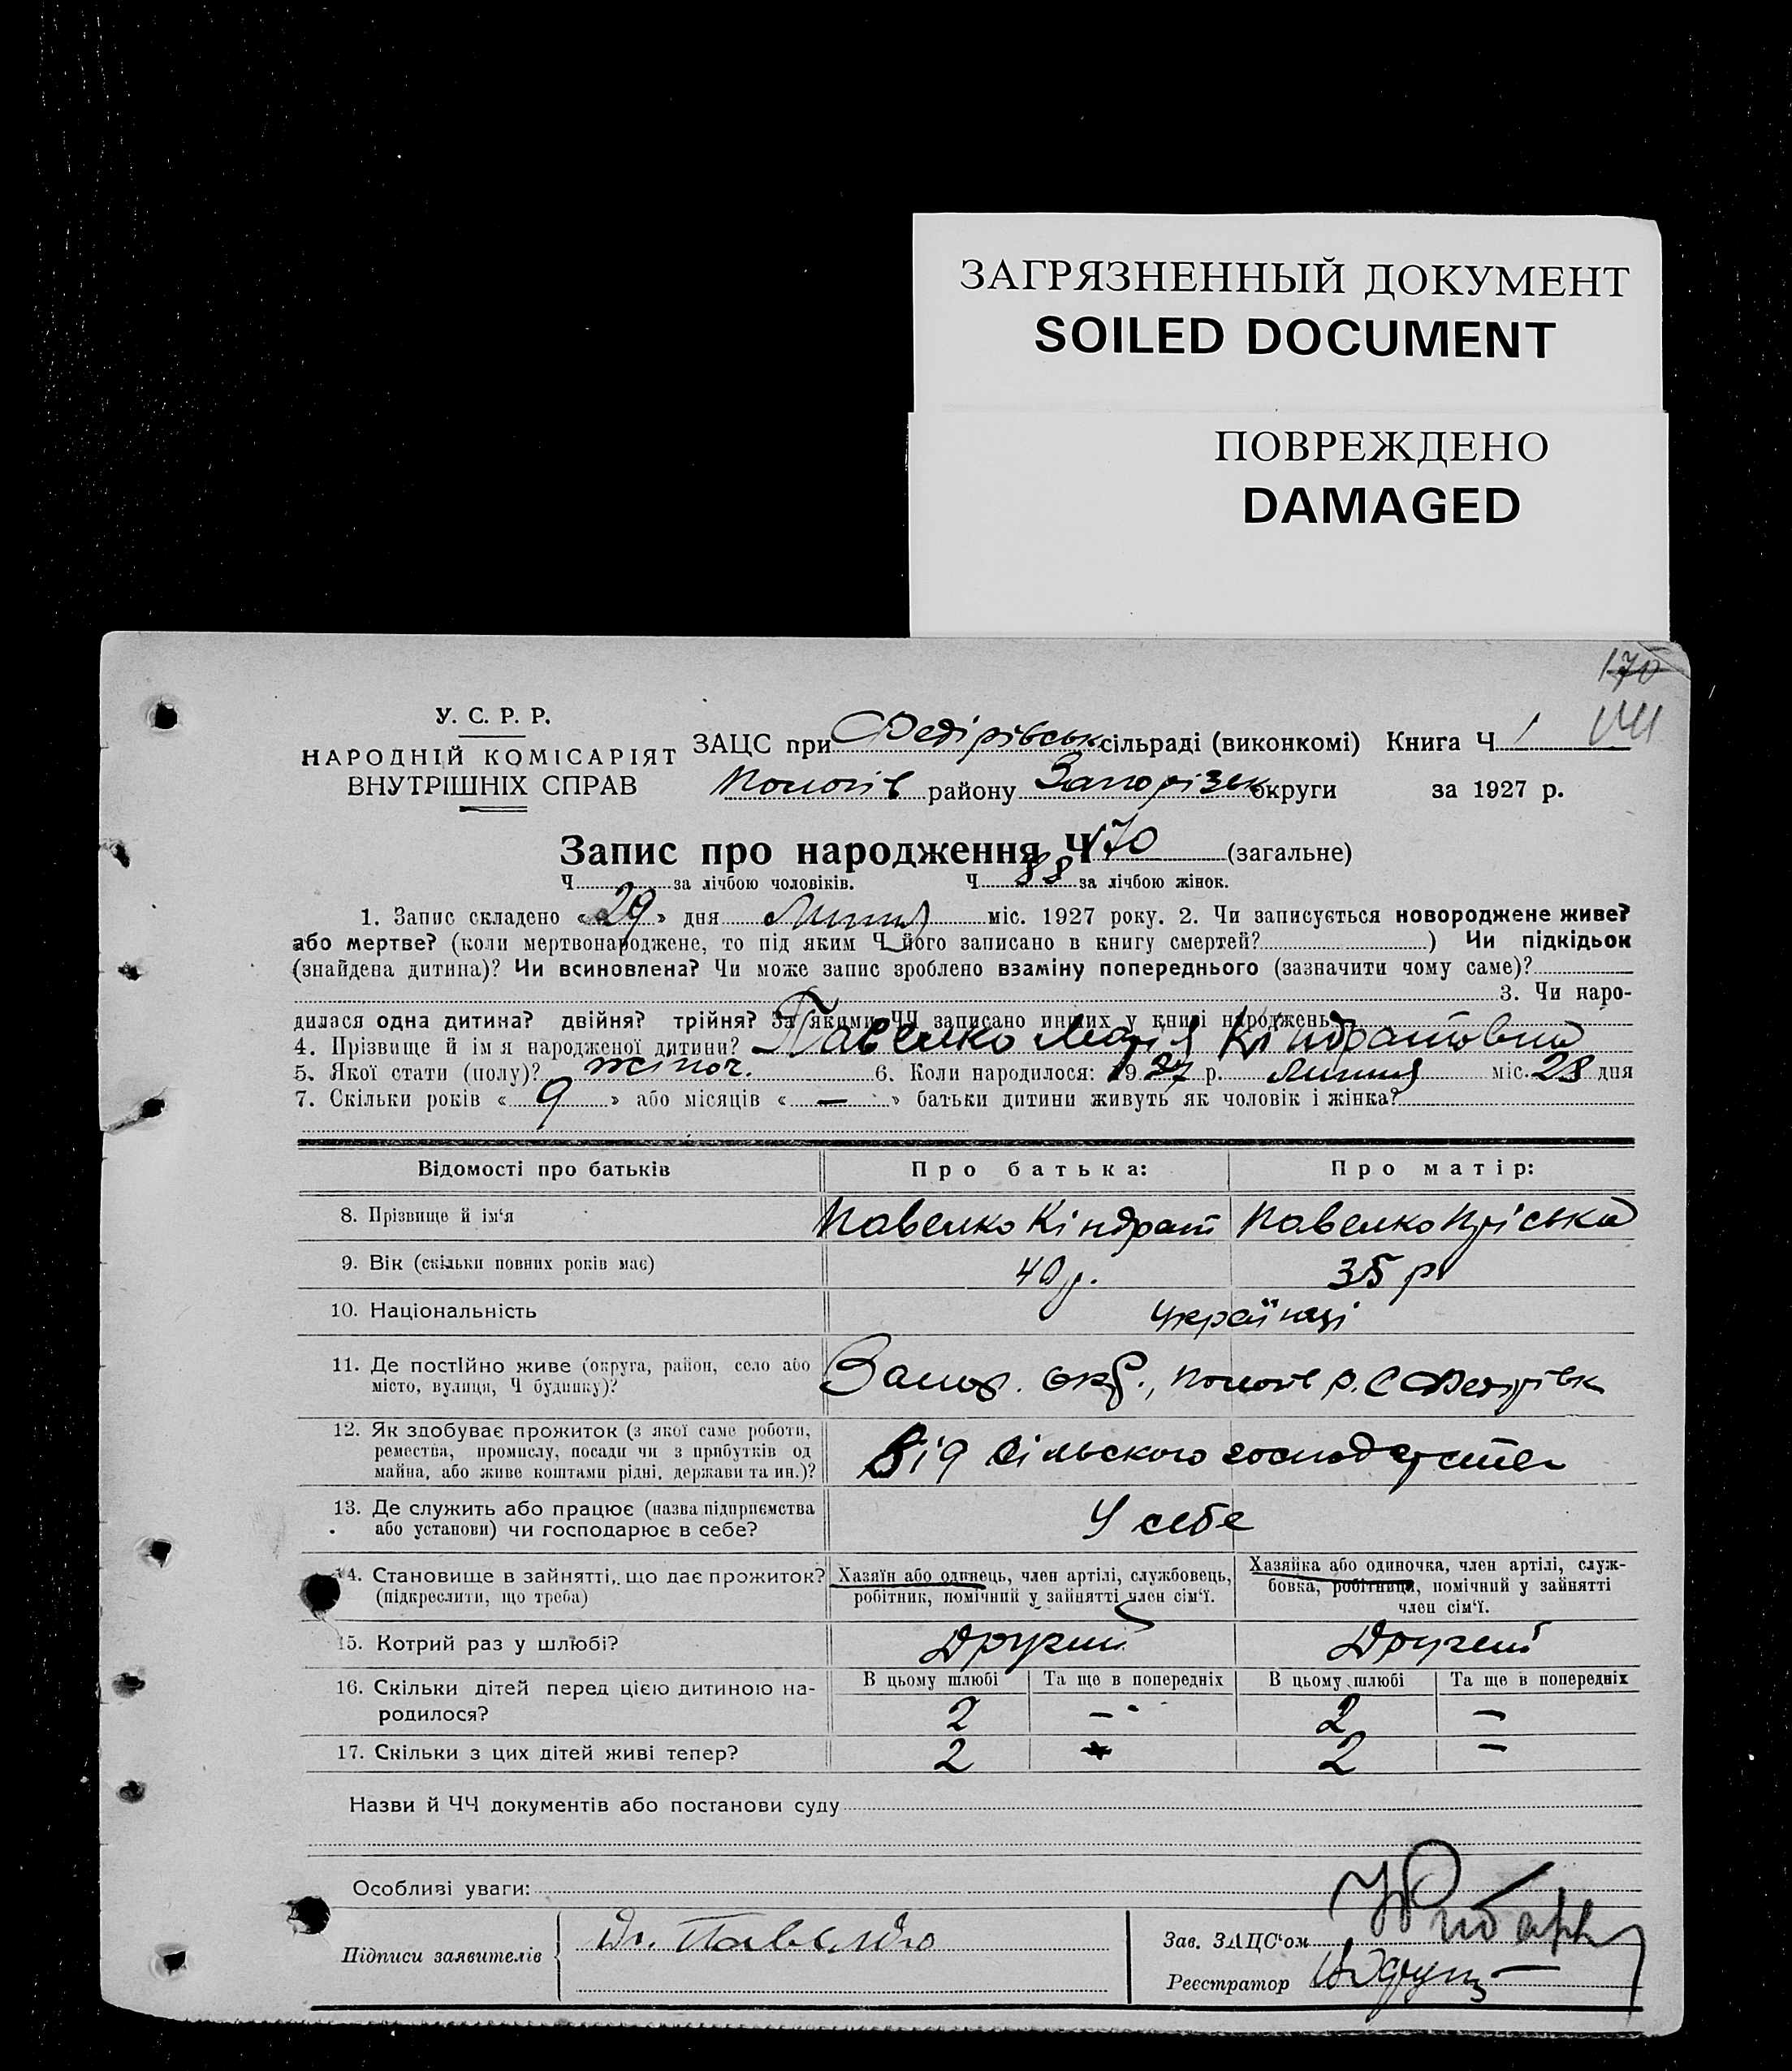 ЗАГРЯЗНЕННЫЙ ДОКУМЕНТ
SOILED DOCUMENT
ПОВРЕЖДЕНО
DAMAGED
170
У. С. Р. Р.
НАРОДНІЙ КОМІСАРІЯТ
ВНУТРІШНІХ СПРАВ
ЗАЦС при Федірівськ сільраді (виконкомі) Книга Ч 1
Пологів району Запорізьк округи за 1927 р.
Запис про народження Ч 170 (загальне)
Ч за лічбою чоловіків. Ч 88 за лічбою жінок.
1. Запис складено « 29 » дня Липня міс. 1927 року. 2. Чи записується новороджене живе?
або мертве? (коли мертвонароджене, то під яким Ч його записано в книгу смертей? ) Чи підкідьок
(знайдена дитина)? Чи всиновлена? Чи може запис зроблено взаміну попереднього (зазначити чому саме)?
3. Чи наро-
дилася одна дитина? двійня? трійня? За якими ЧЧ записано инших у книзі народжень
4. Прізвище й ім я народженої дитини? Павелко Марія Кіндратовна
5. Якої стати (полу)? жіноч. 6. Коли народилося: 1927 р. липня міс. 28 дня
7. Скільки років « 9 » або місяців « — » батьки дитини живуть як чоловік і жінка?
Відомості про батьків Про батька: Про матір:
8. Прізвище й ім'я Павелко Кіндрат Павелко Пріська
9. Вік (скільки повних років має) 40 р. 35 р
10. Національність українці
11. Де постійно живе (округа, район, село або
місто, вулиця, Ч будинку)? Запор. окр., Пологів р. С Федірівк
12. Як здобуває прожиток (з якої саме роботи,
ремества, промислу, посади чи з прибутків од
майна, або живе коштами рідні, держави та ин.)? Від сільского господарства
13. Де служить або працює (назва підприємства
або установи) чи господарює в себе? У себе
14. Становище в зайнятті, що дає прожиток?
(підкреслити, що треба)
Хазяїн або одинець, член артілі, службовець,
робітник, помічний у зайнятті член сім'ї.
Хазяйка або одиночка, член артілі, служ-
бовка, робітниця, помічний у зайнятті
член сім'ї.
15. Котрий раз у шлюбі? Другий Другий
16. Скільки дітей перед цією дитиною на-
родилося?
В цьому шлюбі Та ще в попередніх В цьому шлюбі Та ще в попередніх
2 — 2 —
17. Скільки з цих дітей живі тепер? 2 2 —
Назви й ЧЧ документів або постанови суду
Особливі уваги:
Підписи заявителів Павелко
Зав. ЗАЦС'ом
Реєстратор